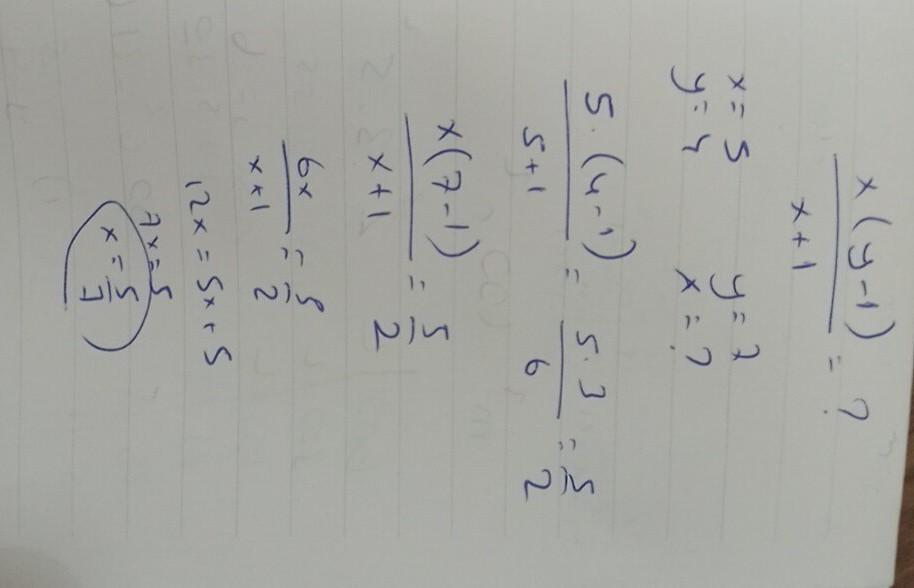 x(y-1)/x+1 = ?
x=5 y=7
y=4 x=?
5.(4-1)/5+1 = 5.3/6 = 5/2
x(7-1)/x+1 = 5/2
6x/x+1 = 5/2
12x = 5x+5
7x=5
x=5/7